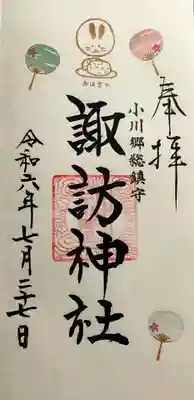 奉拝
小川郷総鎮守
諏訪神社
令和六年七月二十七日